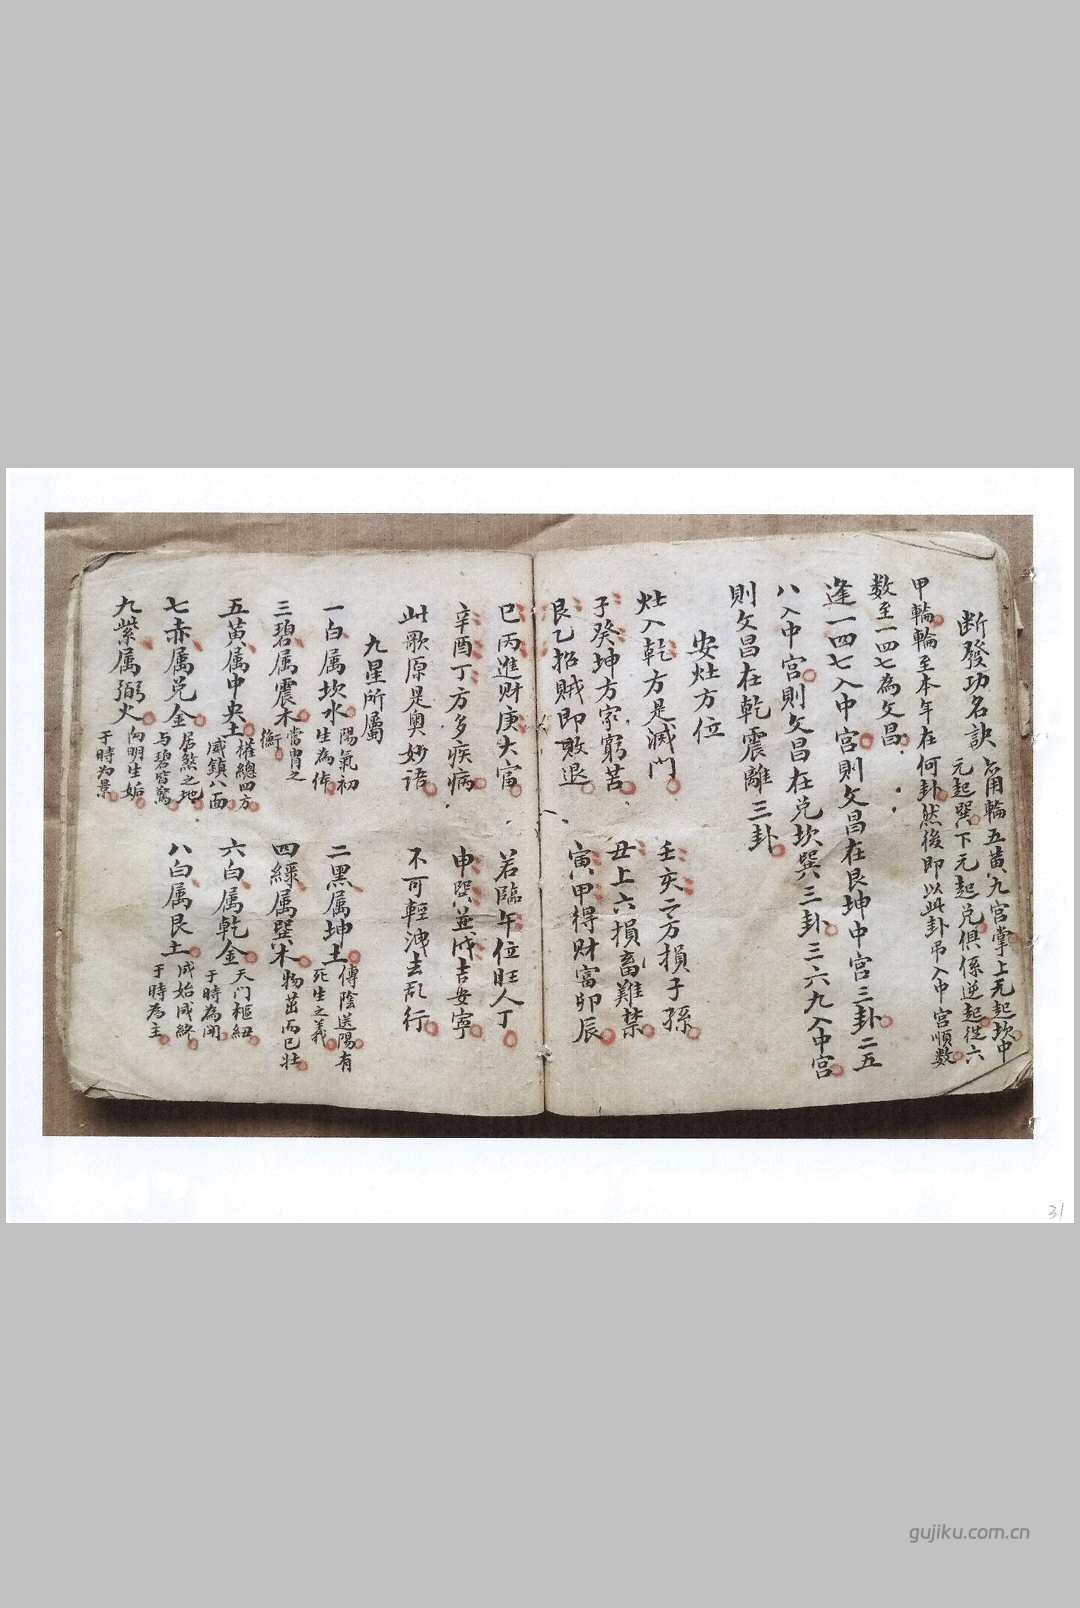 断發功名訣
六用輪五黄九宫掌上元起坎中
元起巽下元起兑俱係逆起從六
甲輪輪至本年在何卦然後即以此卦吊入中宫順数
数至一四七為文昌
逢一四七入中宫則文昌在艮坤中宫三卦二五
八入中宫則文昌在兑坎巽三卦三六九入中宫
則文昌在乾震離三卦
安灶方位
灶入乾方是滅門 壬亥二方損子孫
子癸坤方家窮苦 丑上六損畜難禁
艮乙招賊即敗退 寅甲得财富卯辰
巳丙進财庚大富 若臨午位旺人丁
辛酉丁方多疾病 申巽並戍吉安寧
此歌原是奥妙語 不可輕洩去乱行
九星所屬
一白属坎水 陽氣初生為休
二黑属坤土 傳陰送陽有死生之義
三碧属震木 當胃之衝
四綠属巽木 物茁而已壮
五黄属中央土 權總四方威鎮八面
六白属乾金 天门樞紐于時為開
七赤属兑金 居煞之地与碧皆驚
八白属艮土 成始成終于時為主
九紫属弼火 向明生姤于時为景
31
gujiku.com.cn